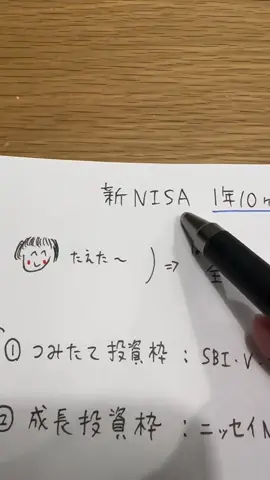 新NISA 1年10
たえた〜 ) ⇒ 全
① つみたて投資枠 : SBI・V・
② 成長投資枠 : ニッセイN